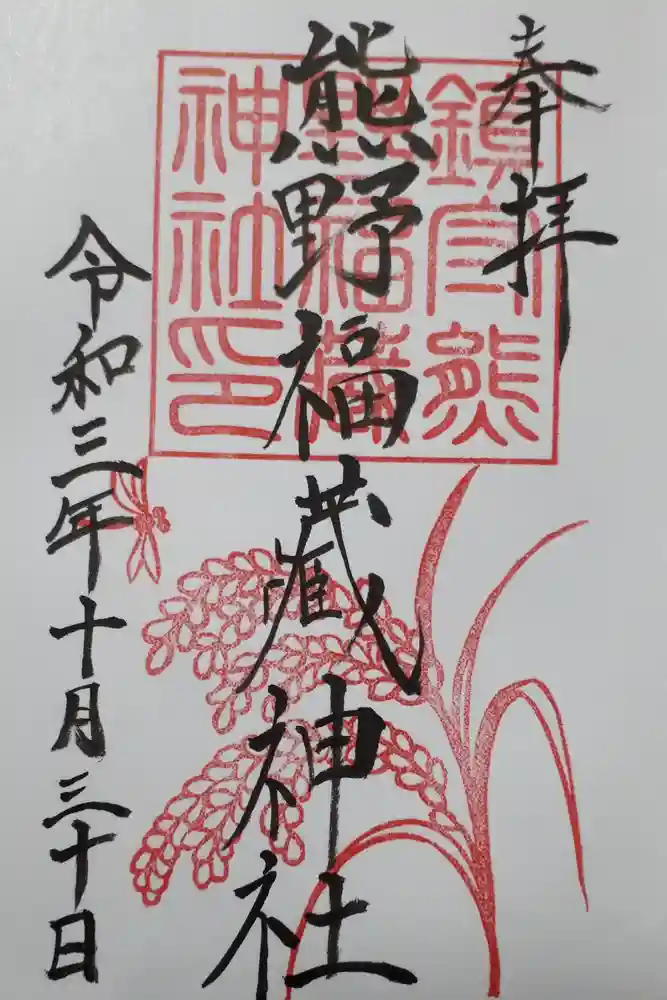 奉拝
熊野福蔵神社
令和三年十月三十日
鎮守熊
野福蔵
神社印